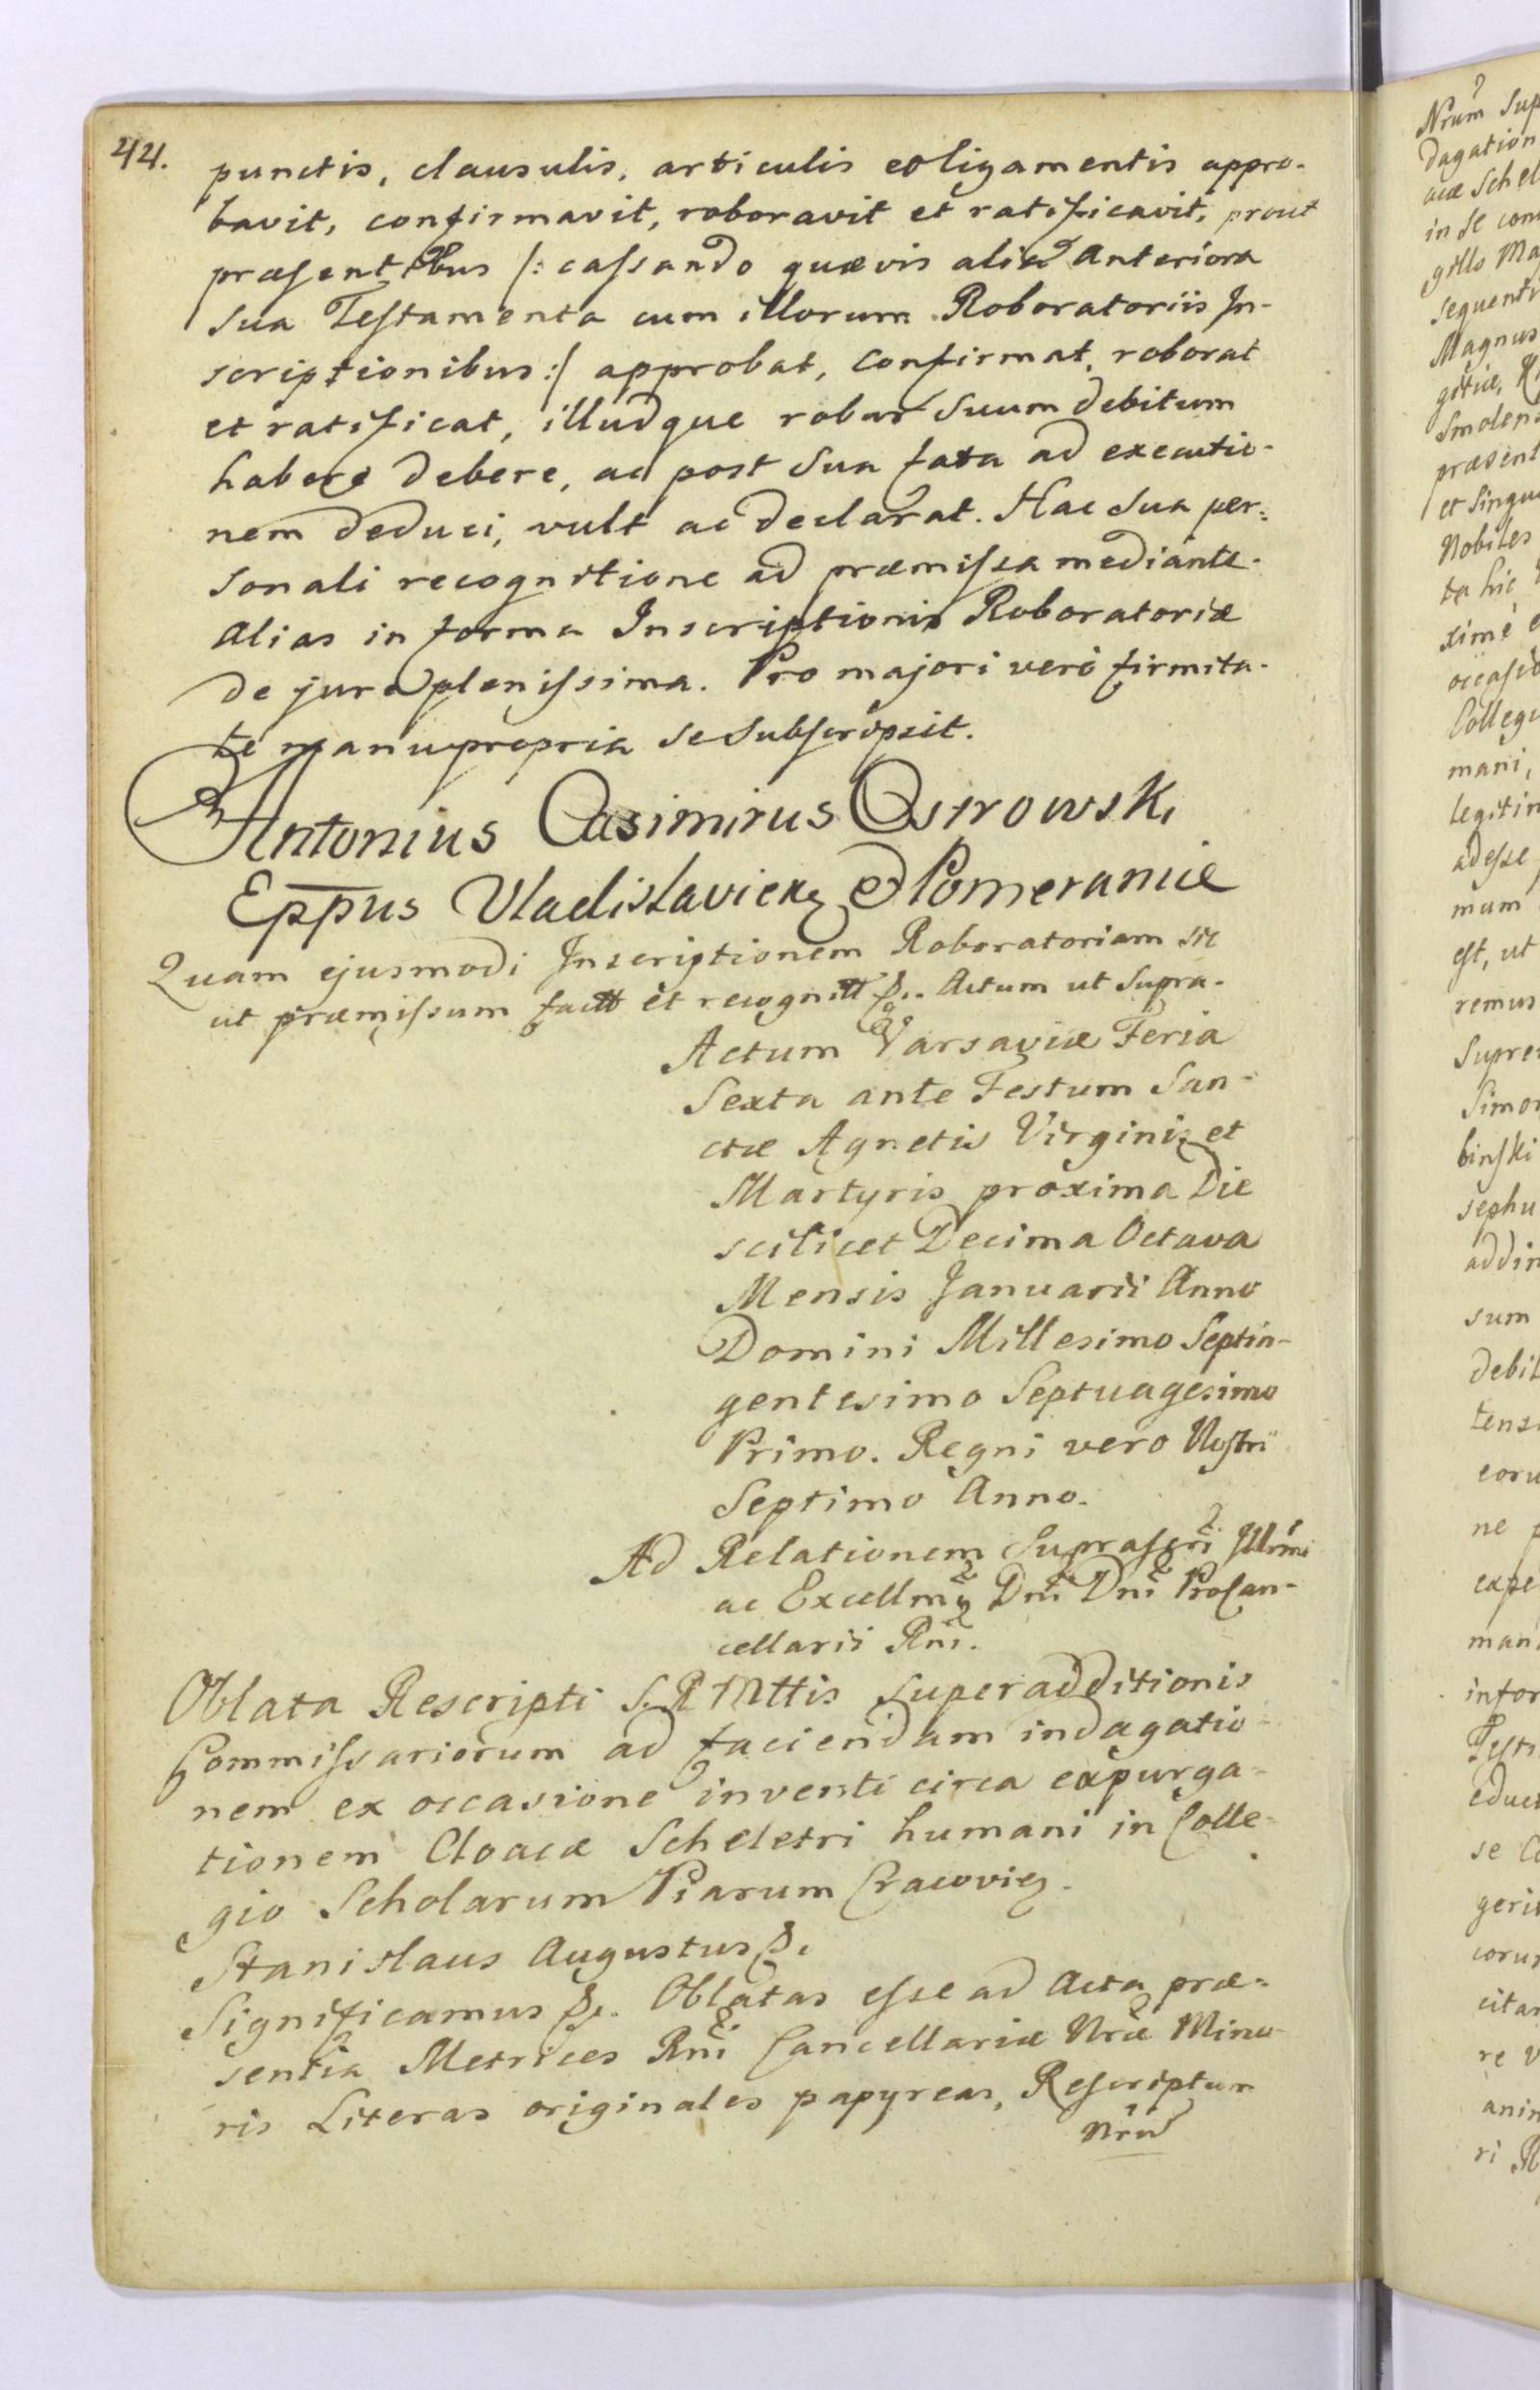 44.
punctis, clausulis, articulis et ligamentis appro-
bavit, confirmavit, roboravit et ratificavit, prout
præsentibus /: cassando quævis alia anteriora
sua Testamenta cum illorum Roboratoriis In-
scriptionibus :/ approbat, confirmat, roborat
et ratificat, illudque robur suum debitum
habere debere, ac post sua fata ad executio-
nem deduci, vult ac declarat. Hac sua per-
sonali recognitione ad præmissa mediante.
Alias in forma Inscriptionis Roboratoriæ
de jure plenissima. Pro majori verò firmita-
te manu propria se subscripsit.
Antonius Casimirus Ostrowski
Eppus Vladislavien et Pomeraniæ
Quam ejusmodi Inscriptionem Roboratoriam sic
ut præmissum factt et recognitt &. Actum ut supra.
Actum Varsaviæ Feria
Sexta ante Festum San-
ctæ Agnetis Virginis et
Martyris proxima Die
scilicet Decima Octava
Mensis Januarii Anno
Domini Millesimo Septin-
gentesimo Septuagesimo
Primo. Regni vero Nostri
Septimo Anno.
Ad Relationem Suprascri Illmi
ac Excellmi Dni Dni ProCan-
cellarii Rni.
Oblata Rescripti S. R. Mttis superadditionis
Commissariorum ad faciendam indagatio-
nem ex occasione inventi circa expurga-
tionem Cloacæ Scheletri humani in Colle-
gio Scholarum Piarum Cracovien.
Stanislaus Augustus &.
Significamus &. Oblatas esse ad Acta præ-
sentia Metrices Rni Cancellariæ Nræ Mino-
ris Literas originales papyreas, Rescriptum
Nrum
Nrum sup
dagation
acæ Schel
in se con
gillo Ma
sequenti
Magnus
gitiæ,
Smolens
præsent
et singu
Nobiles
ta hic
ximè e
occasio
Collegi
mani,
legitim
adesse
mum
est, ut
remus
Supre
Simo
binski
sephu
addin
sum
debit
tens
eoru
ne
expe
man
infor
Testi
educ
se
geri
coru
cita
re
anim
ri